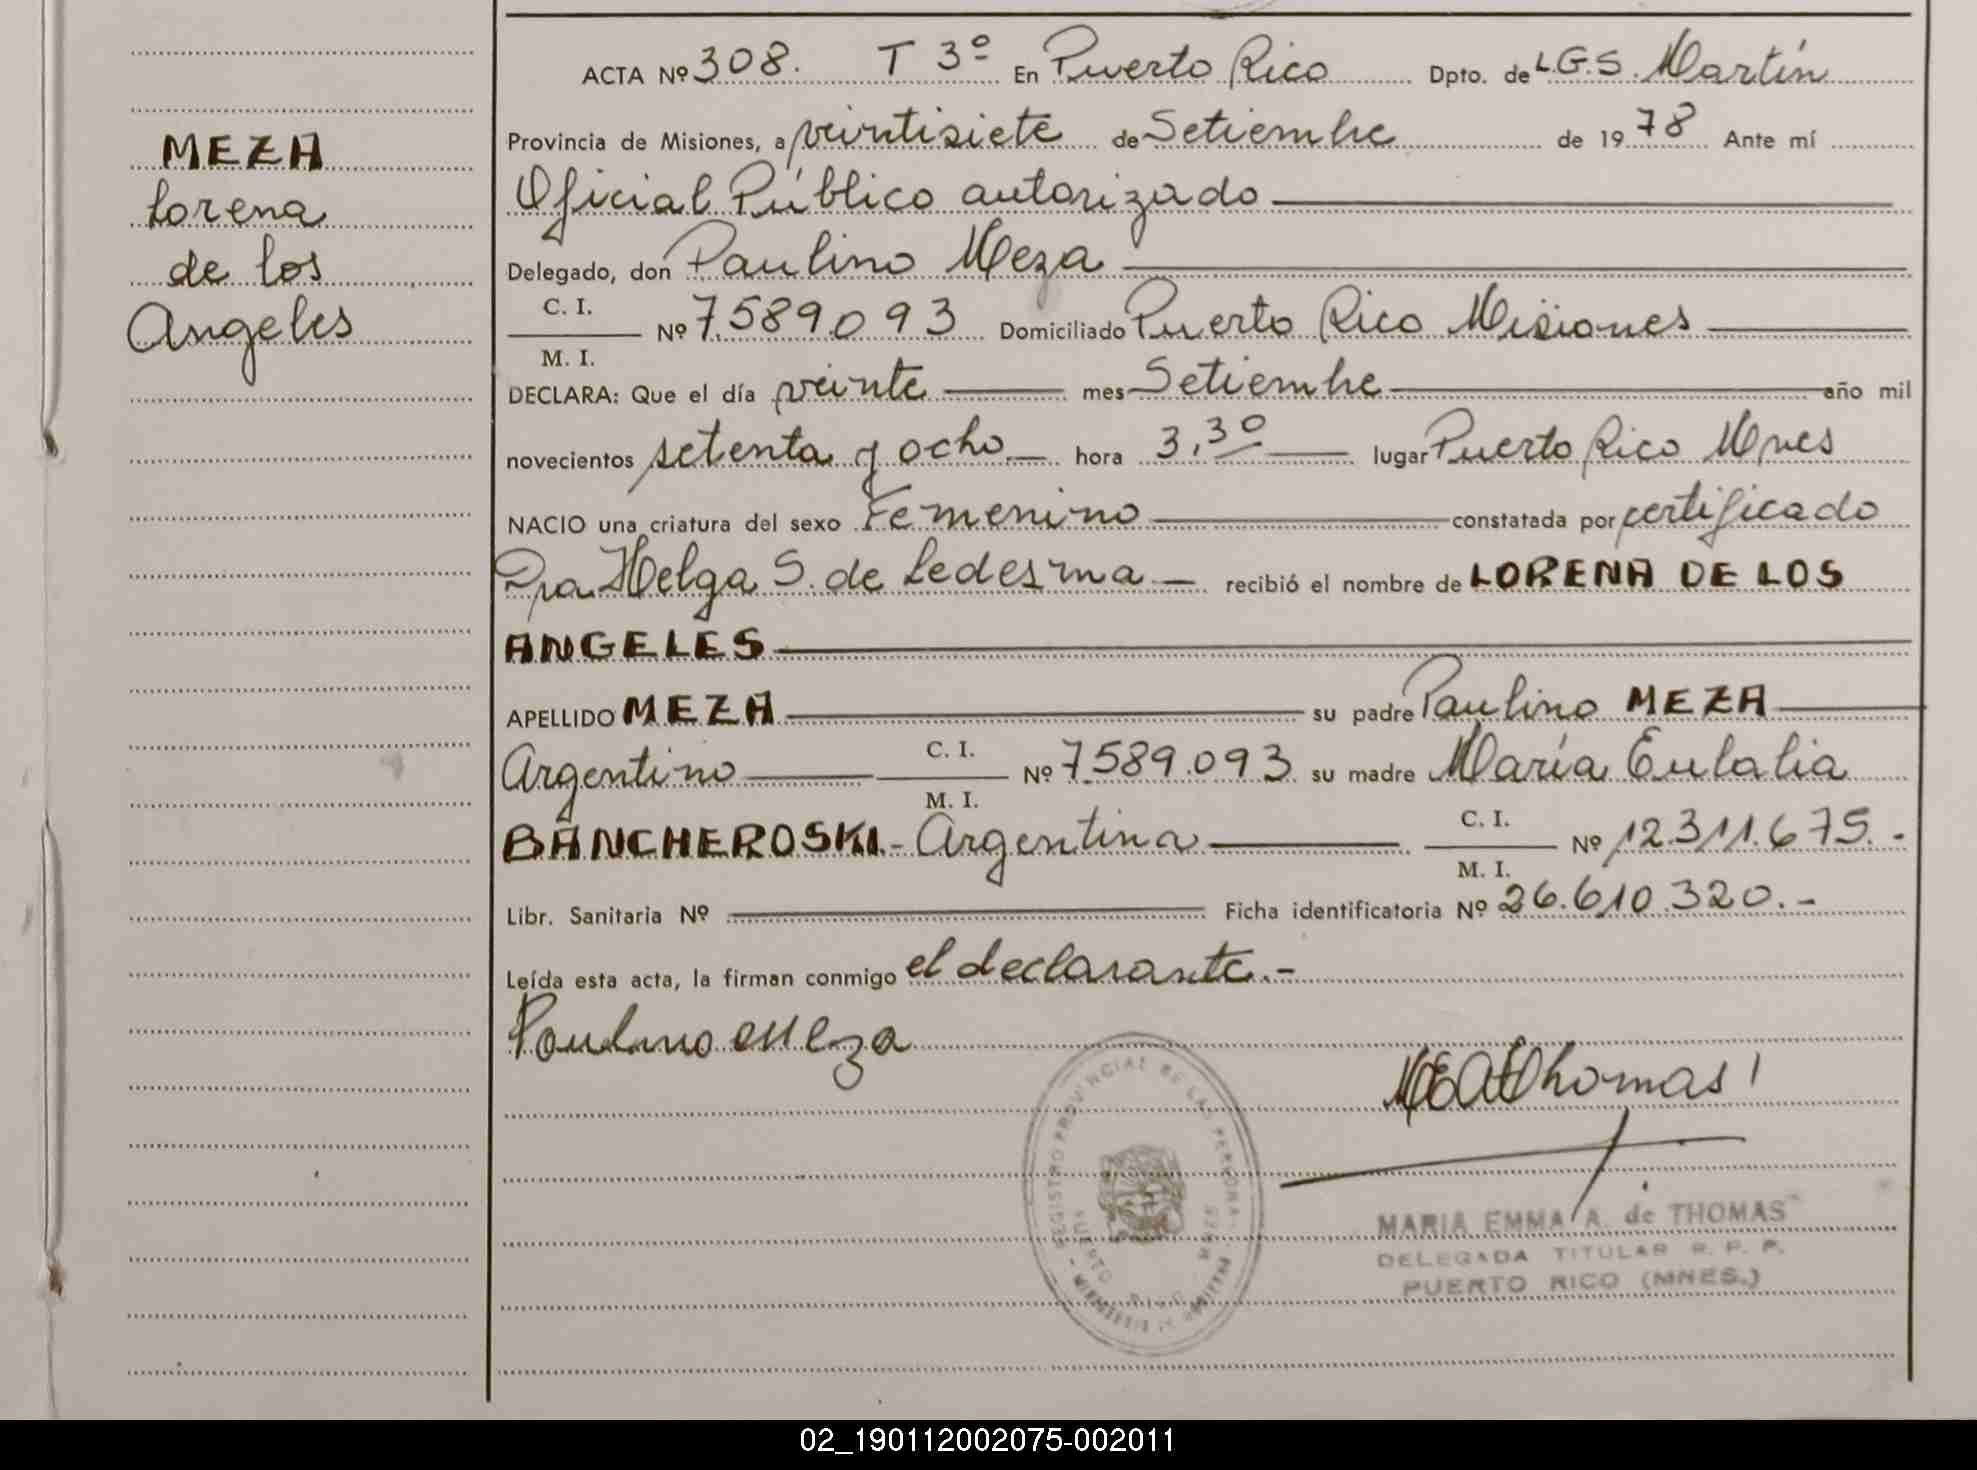 MEZA
Lorena
de los
Angeles
ACTA Nº 308. T 3º En Puerto Rico Dpto. de L.G.S. Martín
Provincia de Misiones, a veintisiete de Setiembre de 1978 Ante mí
Oficial Público autorizado
Delegado, don Paulino Meza
C. I.
M. I.
Nº 7.589.093 Domiciliado Puerto Rico Misiones
DECLARA: Que el día veinte mes Setiembre año mil
novecientos setenta y ocho hora 3,30 lugar Puerto Rico Mnes
NACIO una criatura del sexo Femenino constatada por certificado
Dra Helga S. de Ledesma recibió el nombre de LORENA DE LOS
ANGELES
APELLIDO MEZA su padre Paulino MEZA
Argentino C. I. M. I. Nº 7.589.093 su madre María Eulalia
BANCHEROSKI.- Argentina C. I. M. I. Nº 12.311.675.-
Libr. Sanitaria Nº Ficha identificatoria Nº 26.610.320.-
Leída esta acta, la firman conmigo el declarante.-
Paulino Meza
MEAdThomas
REGISTRO PROVINCIAL DE LAS PERSONAS
PUERTO RICO
MARIA EMMA A. de THOMAS
DELEGADA TITULAR R. P. P.
PUERTO RICO (MNES.)
02_190112002075-002011